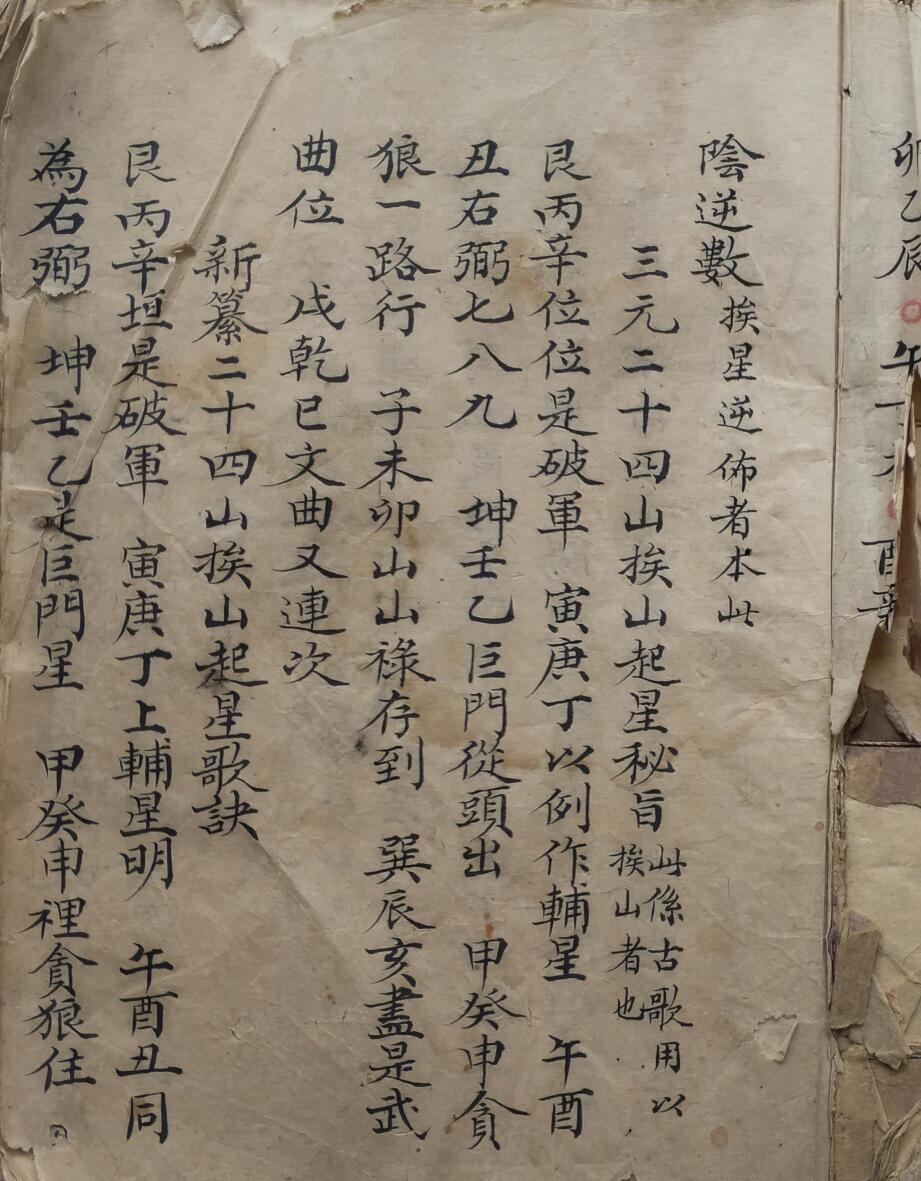 卯乙辰 午 酉辛
陰逆數 挨星逆佈者本此
三元二十四山挨山起星秘旨 此係古歌用以挨山者也
艮丙辛位位是破軍 寅庚丁以例作輔星 午酉
丑右弼七八九 坤壬乙巨門從頭出 甲癸申貪
狼一路行 子未卯山山祿存到 巽辰亥盡是武
曲位 戌乾巳文曲又連次
新纂二十四山挨山起星歌訣
艮丙辛垣是破軍 寅庚丁上輔星明 午酉丑同
為右弼 坤壬乙是巨門星 甲癸申裡貪狼住